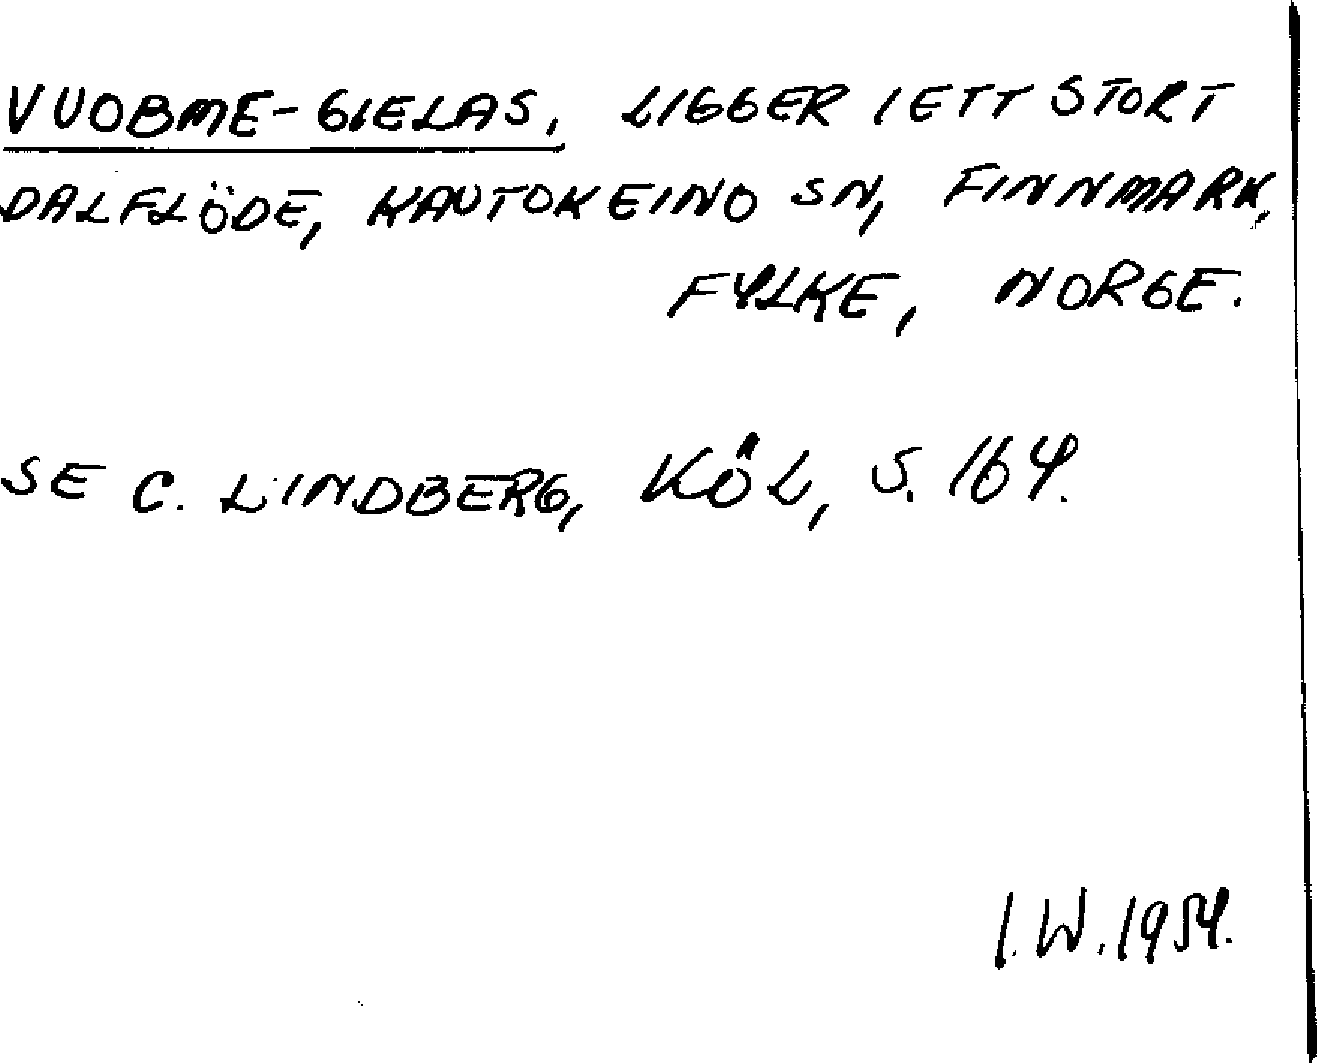 VUOBME-GIELAS, LIGGER I ETT STORT
DALFLÖDE, KAUTOKEINO SN, FINNMARK,
FYLKE, NORGE.
SE C. LINDBERG, KÖL, S. 164.
I.W. 1954.